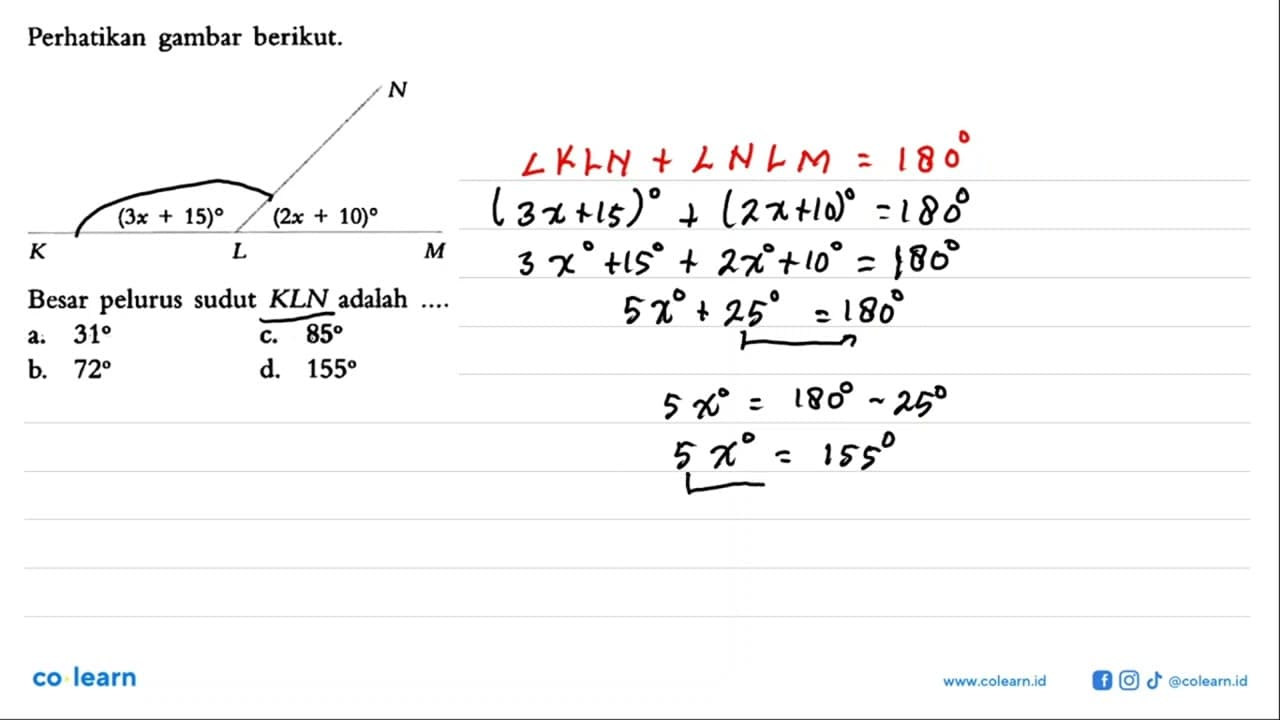 Perhatikan gambar berikut.
N
(3x + 15)° (2x + 10)°
K L M
Besar pelurus sudut KLN adalah ....
a. 31° c. 85°
b. 72° d. 155°
∠KLN + ∠NLM = 180°
(3x+15)° + (2x+10)° = 180°
3x° + 15° + 2x° + 10° = 180°
5x° + 25° = 180°
5x° = 180° - 25°
5x° = 155°
co learn
www.colearn.id @colearn.id